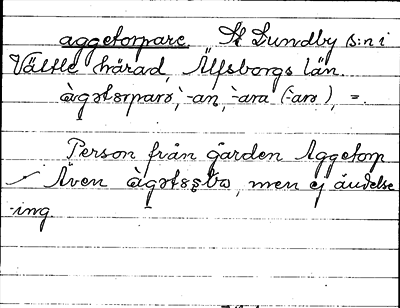 aggetorpare. St Lundby s:n i
Vättle härad, Älfsborgs län.
àgətorparə, -an, -ara (-arə), =.
Person från gården Aggetorp
Även àgətoʂbə, men ej ändelse
-ing